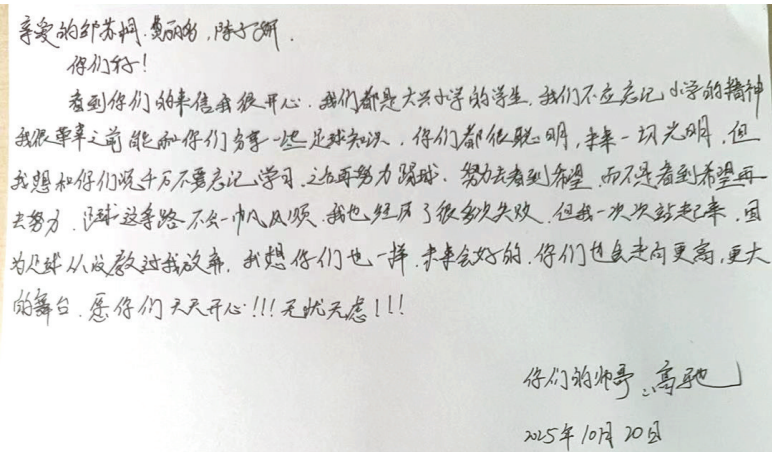 亲爱的邹苏桐、黄丽彤、陈子妍、
你们好！
看到你们的来信我很开心，我们都是大兴小学的学生，我们不应忘记小学的精神
我很荣幸之前能和你们分享一些足球知识，你们都很聪明，未来一切光明，但
我想和你们说千万不要忘记学习，之后再努力踢球，努力去看到希望，而不是看到希望再
去努力，足球这条路不会一帆风顺，我也经历了很多次失败，但我一次次站起来，因
为足球从没教过我放弃，我想你们也一样，未来会好的，你们也会走向更高，更大
的舞台，愿你们天天开心！！！无忧无虑！！！
你们的师哥：高驰
2025年10月20日